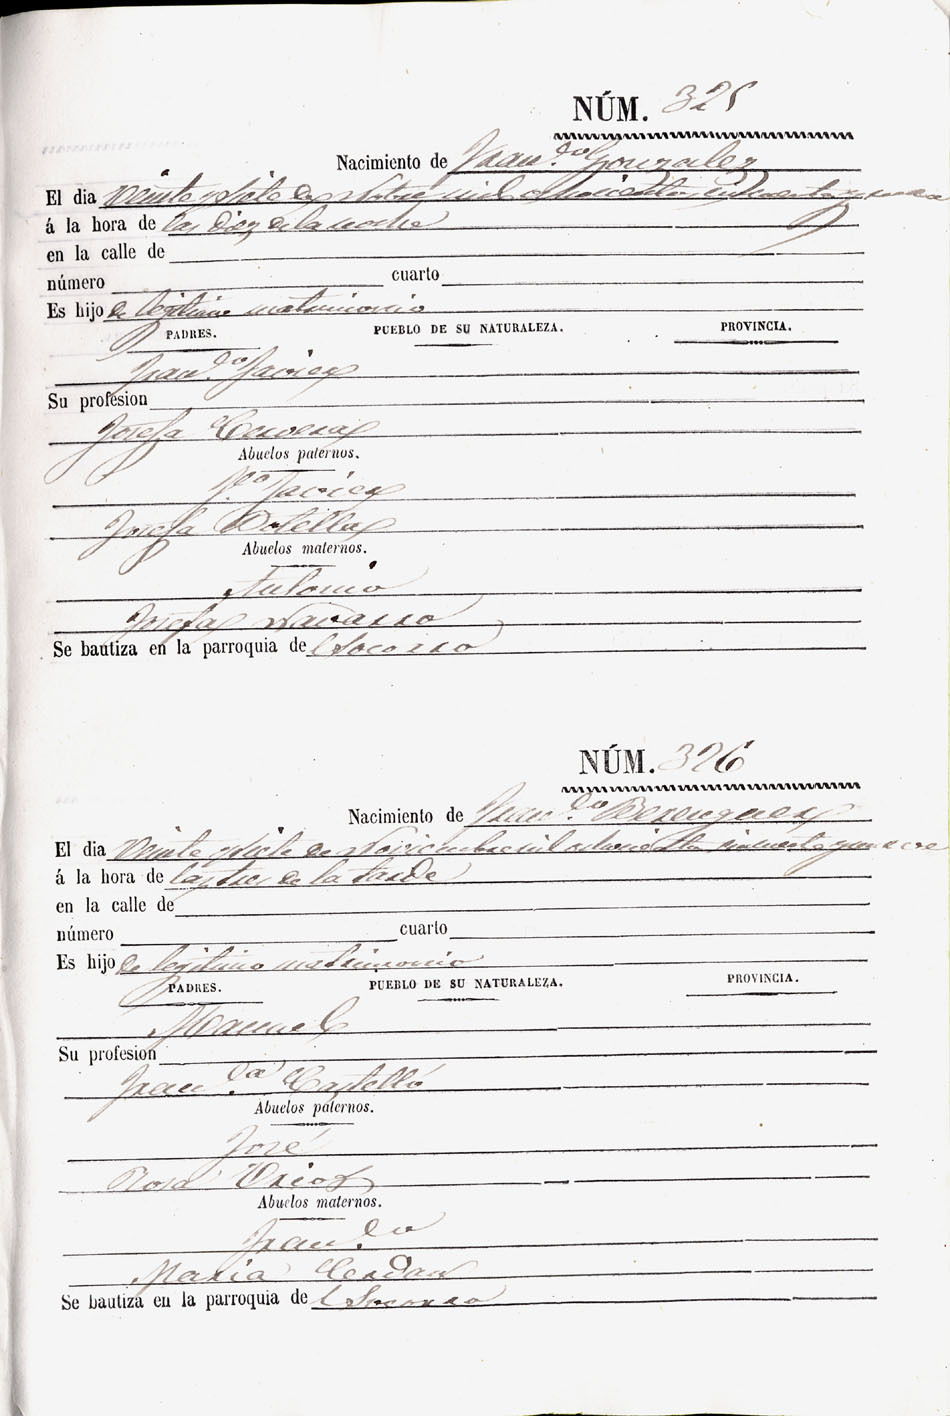 NÚM. 325
Nacimiento de Fran.co Gonzalez
El dia veinte y siete de Nbre mil ochocientos cincuenta y nueve
á la hora de las diez de la noche
en la calle de
número cuarto
Es hijo de legitimo matrimonio
PADRES. PUEBLO DE SU NATURALEZA. PROVINCIA.
Fran.co Javier
Su profesion
Josefa Cervera
Abuelos paternos.
Javier
Josefa Botella
Abuelos maternos.
Antonio
Josefa Navarro
Se bautiza en la parroquia de l Socorro
NÚM. 326
Nacimiento de Fran.co Berenguer
El dia veinte y siete de Noviembre mil ochocientos cincuenta y nueve
á la hora de las tres de la tarde
en la calle de
número cuarto
Es hijo de legitimo matrimonio
PADRES. PUEBLO DE SU NATURALEZA. PROVINCIA.
Manuel
Su profesion
Fran.ca Castelló
Abuelos paternos.
José
Rosa
Abuelos maternos.
Fran.co
Maria Cerdan
Se bautiza en la parroquia de l Socorro